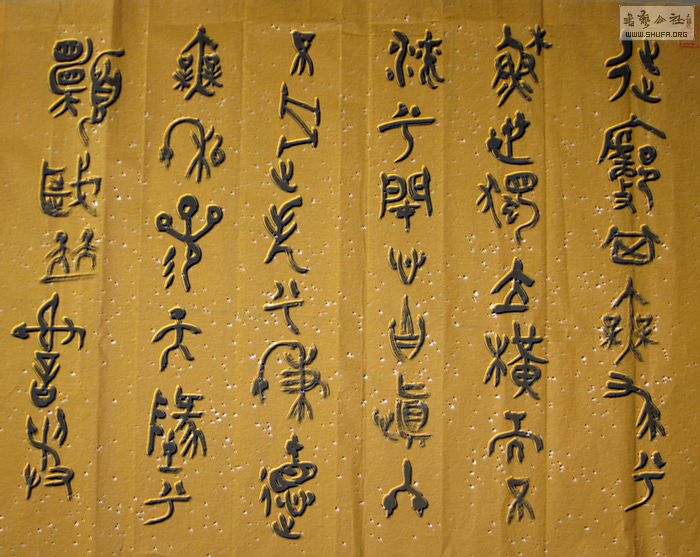 徙廓其無求兮
蘇世獨立橫而不
流兮閉心自慎終
不過失兮秉德
無私參天墬兮
願歲並謝
書藝公社
WWW.SHUFA.ORG